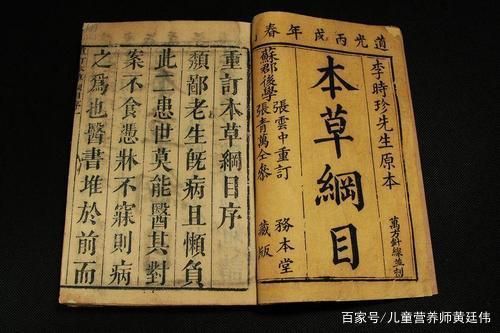 道光丙戌年春
李時珍先生原本
本草綱目
萬方針線並刻
張雲中重訂
蘇郡後學張青萬仝參
務本堂
藏版
重訂本草綱目序
頽鄙老生旣病且懶負
此二患世莫能醫其對
案不食憑牀不寐則病
之爲也醫書堆於前而
百家号/儿童营养师黄廷伟